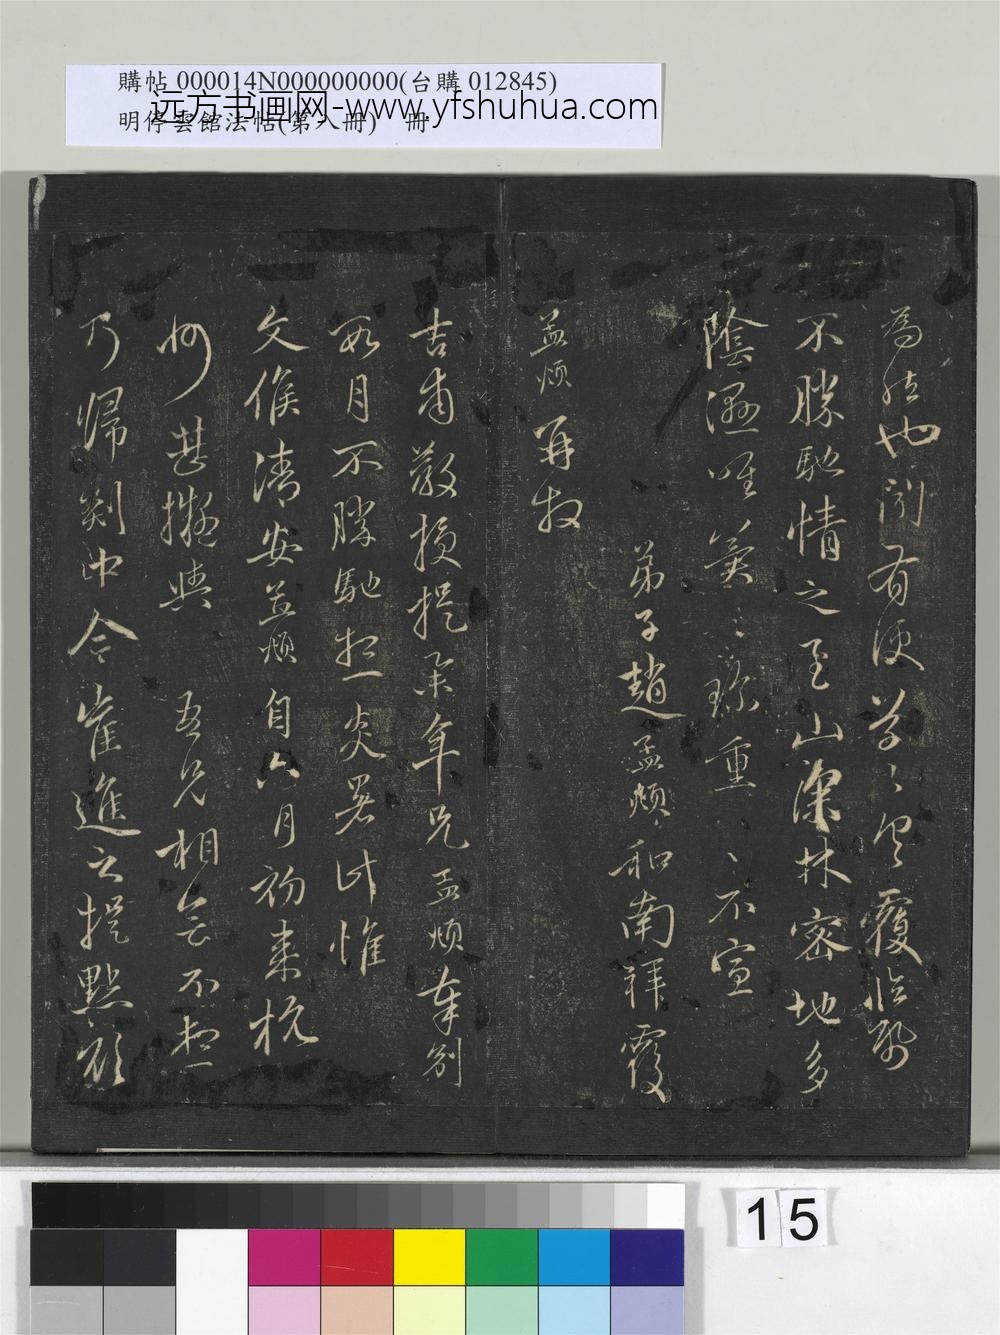 購帖 000014N000000000(台購 012845)
明停雲館法帖(第八冊) 冊
远方书画网-www.yfshuhua.com
為此也聞有便草草具覆臨紙
不勝馳情之至山深林密地多
陰濕唯冀珍重珍重不宣
弟子趙孟頫和南拜覆
孟頫再拜
吉甫教授提舉年兄孟頫奉別
數月不勝馳想炎暑比惟
文候清安孟頫自六月初來杭
州甚擬與 吾兄相會不想
乃歸剡中今崔進之提點欲
15